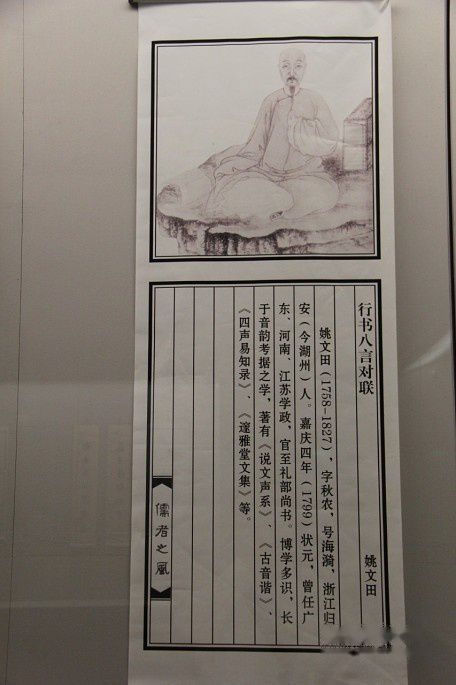 行书八言对联
姚文田
姚文田(1758-1827),字秋农,号海漪,浙江归
安(今湖州)人。嘉庆四年(1799)状元,曾任广
东、河南、江苏学政,官至礼部尚书。博学多识,长
于音韵考据之学,著有《说文声系》、《古音谐》、
《四声易知录》、《邃雅堂文集》等。
儒者之风